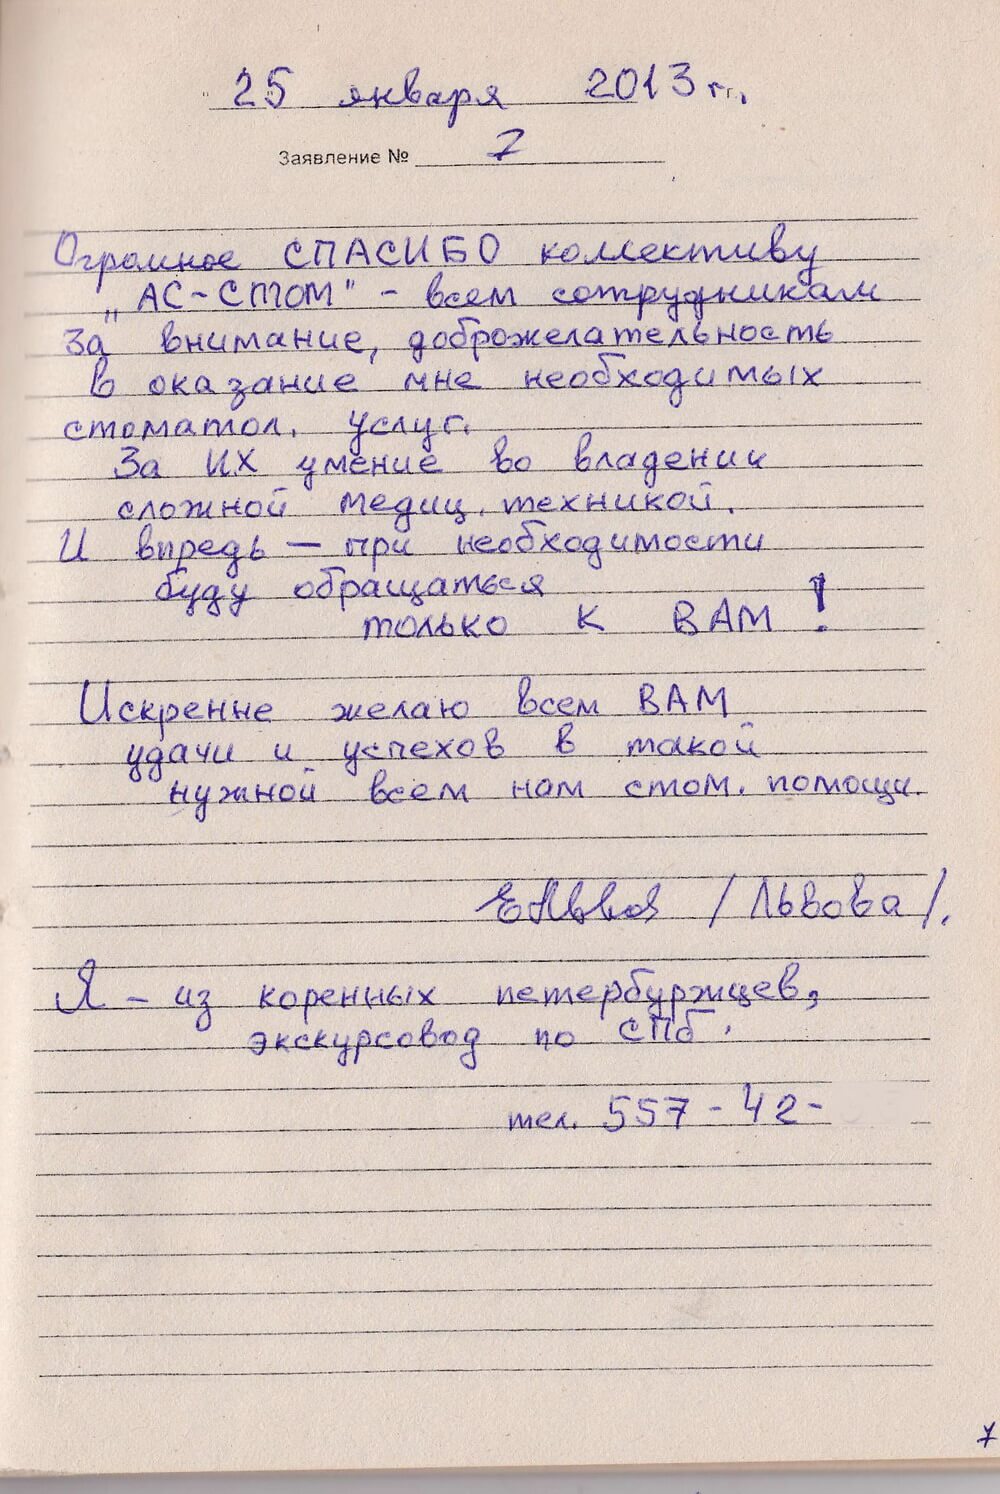 25 января 2013 г.
Заявление № 7
Огромное СПАСИБО коллективу
„АС-СТОМ" - всем сотрудникам
За внимание, доброжелательность
в оказание мне необходимых
стоматол. услуг.
За ИХ умение во владении
сложной медиц. техникой.
И впредь — при необходимости
буду обращаться
только к ВАМ!
Искренне желаю всем ВАМ
удачи и успехов в такой
нужной всем нам стом. помощи.
/Львова/.
Я - из коренных петербуржцев,
экскурсовод по СПб.
тел. 557-42-
7